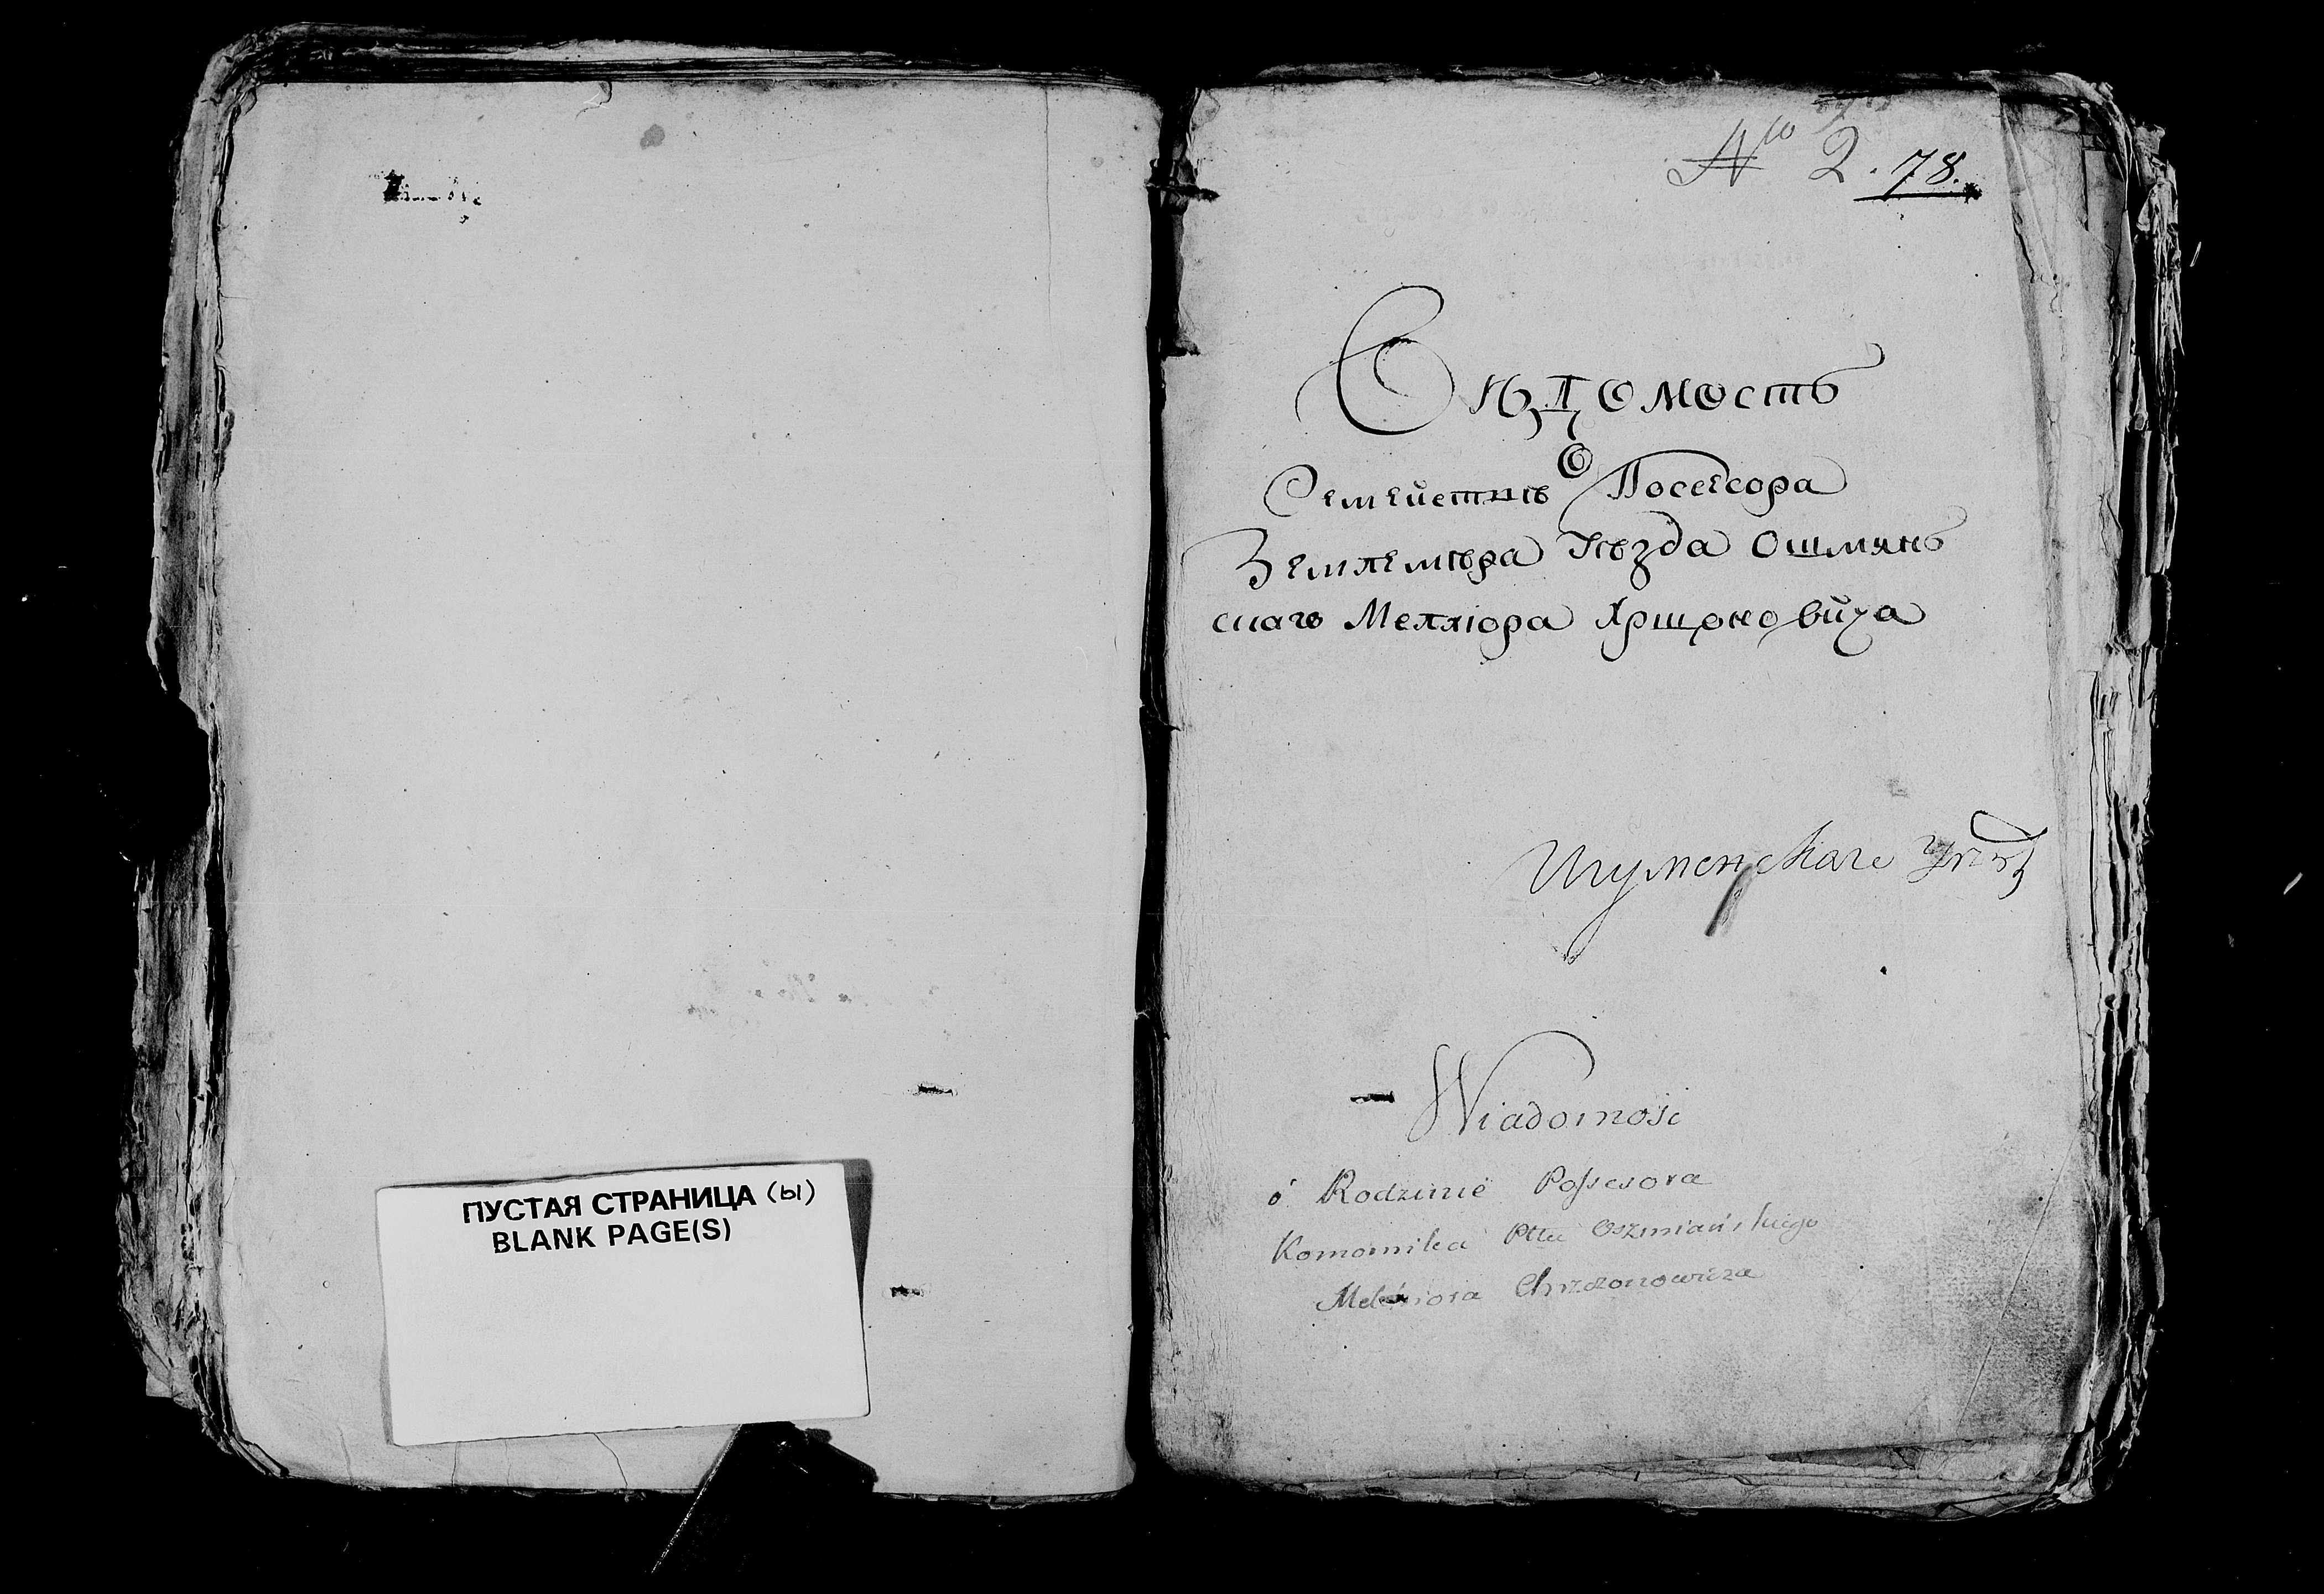 ПУСТАЯ СТРАНИЦА (ы)
BLANK PAGE(S)
No 2. 78.
Вѣдомость
О
Семействѣ Посесора
Землемѣра Уѣзда Ошмянъ
скаго Мелхiора Хрщоновича
Игуменскаго
Wiadomość
ó Rodzinie Possesora
Komornika Pttu Oszmiańskiego
Melchiora Chrzczonowicza